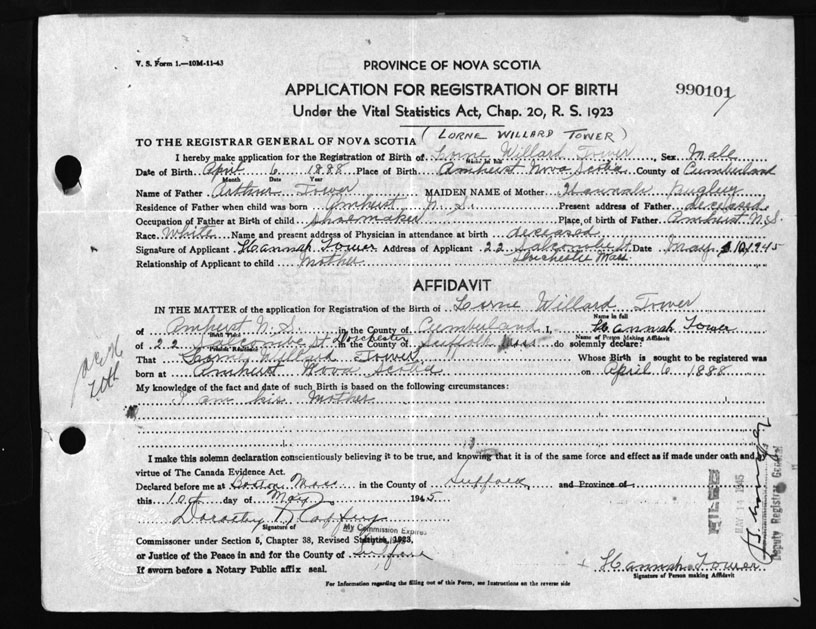 V. S. Form 1.—10M-11-43
PROVINCE OF NOVA SCOTIA
APPLICATION FOR REGISTRATION OF BIRTH
990101
Under the Vital Statistics Act, Chap. 20, R. S. 1923
(LORNE WILLARD TOWER)
TO THE REGISTRAR GENERAL OF NOVA SCOTIA
I hereby make application for the Registration of Birth of Lorne Willard Tower, Sex Male
Name in full
Date of Birth April 6 1888 Place of Birth Amherst Nova Scotia County of Cumberland
Month Date Year
Name of Father Arthur Tower MAIDEN NAME of Mother Hannah
Residence of Father when child was born Amherst N. S. Present address of Father deceased
Occupation of Father at Birth of child Shoemaker Place of birth of Father Amherst N.S.
Race White Name and present address of Physician in attendance at birth deceased
Signature of Applicant Hannah Tower Address of Applicant 22 Salcombe St Date May 10 1945
Relationship of Applicant to child Mother Dorchester Mass
AFFIDAVIT
IN THE MATTER of the application for Registration of the Birth of Lorne Willard Tower
Name in full
of Amherst N. S. in the County of Cumberland I, Hannah Tower
Birth Place Name of Person Making Affidavit
of 22 Salcombe St Dorchester in the County of Suffolk Mass do solemnly declare:
Present Residence
That Lorne Willard Tower Whose Birth is sought to be registered was
born at Amherst Nova Scotia on April 6 1888
My knowledge of the fact and date of such Birth is based on the following circumstances:
I am his Mother
I make this solemn declaration conscientiously believing it to be true, and knowing that it is of the same force and effect as if made under oath and
virtue of The Canada Evidence Act.
Declared before me at Boston Mass in the County of Suffolk and Province of
this 10th day of May 1945
Dorothy
Signature of My Commission Expires
Commissoner under Section 5, Chapter 38, Revised Statutes, 1923,
or Justice of the Peace in and for the County of Suffolk
If sworn before a Notary Public affix seal.
Hannah Tower
Signature of Person making Affidavit
For Information regarding the filling out of this Form, see Instructions on the reverse side
FILED
MAY 14 1945
Deputy Registrar General